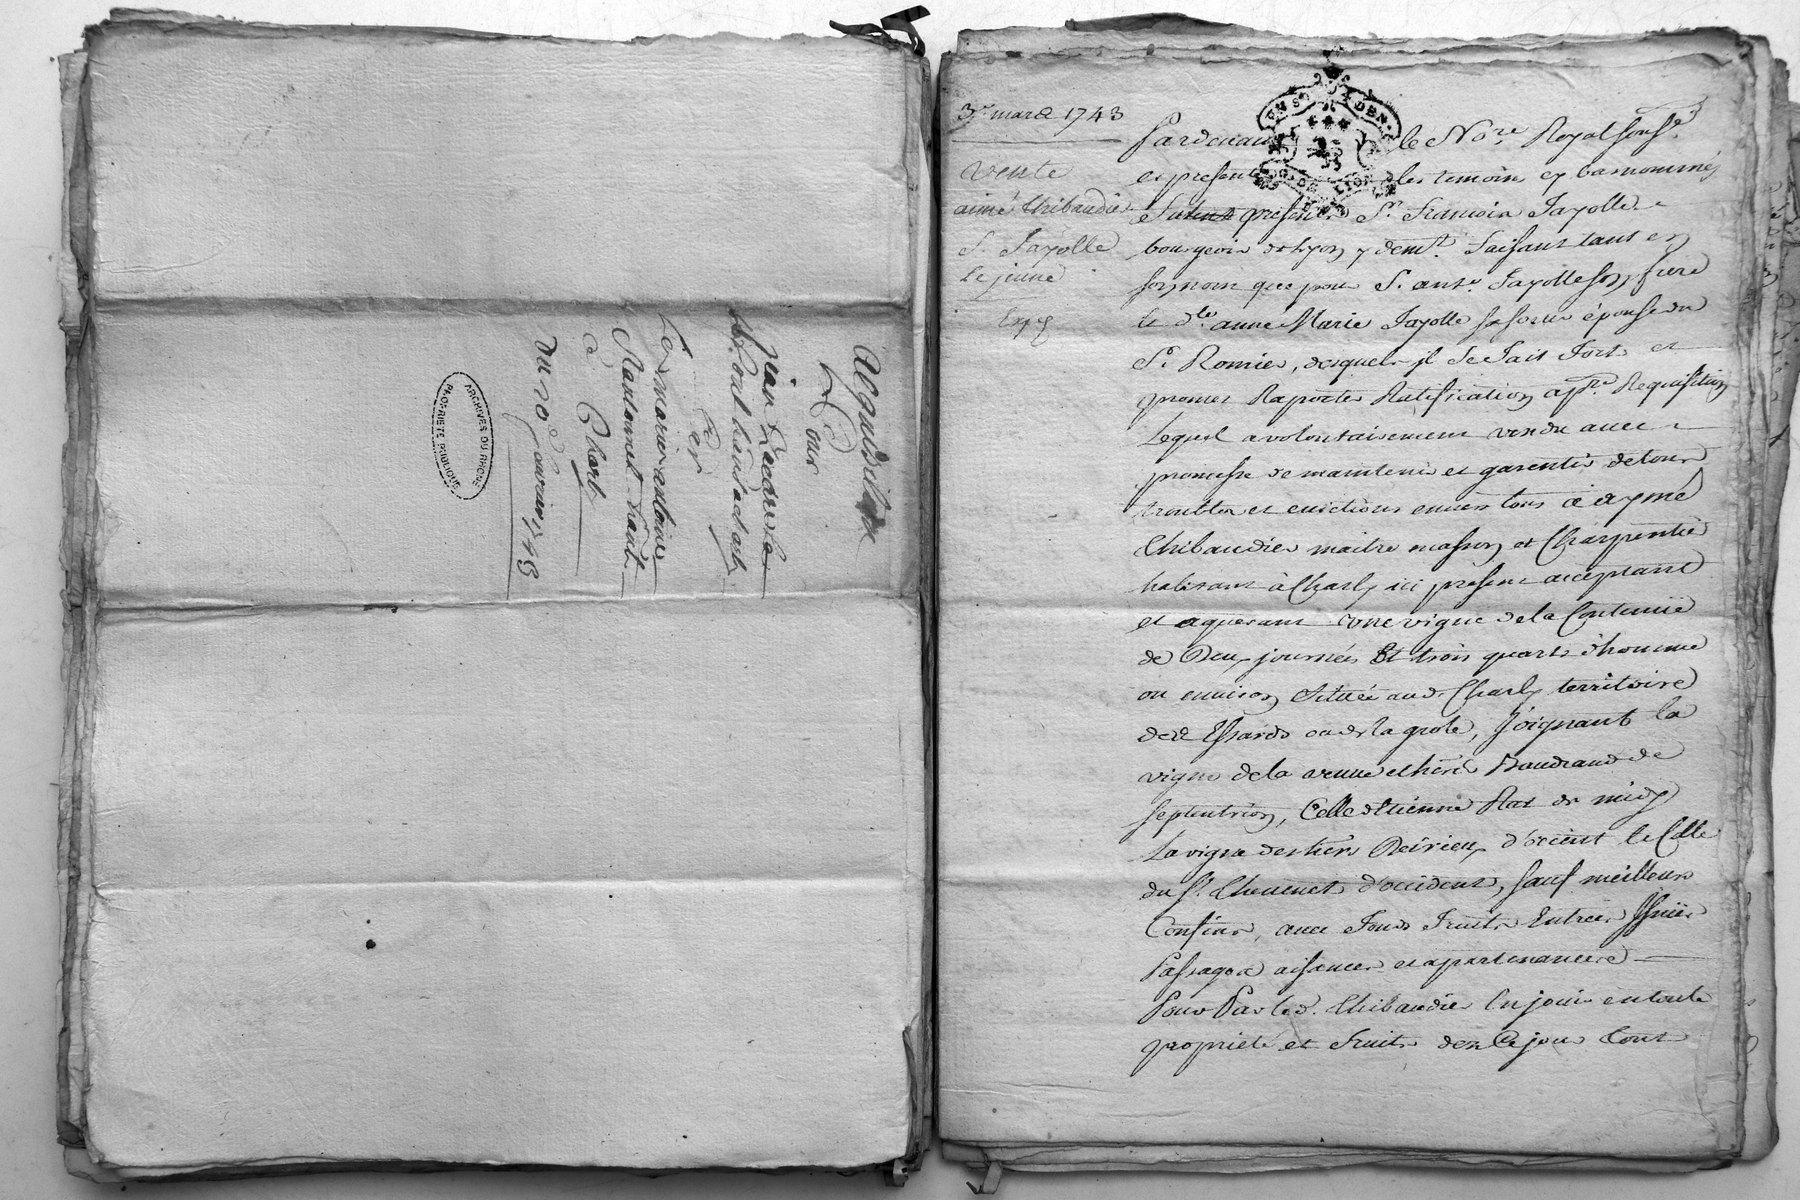 acquisition
Pour
jean
à Charly
du 20e
1743
ARCHIVES DU RHÔNE
PROPRIÉTÉ PUBLIQUE
3e mars 1743
Vente
aimé thibaudier
Sr fayolle
le jeune
Expé
Pardevant le Nore Royal soussé
et presents les temoins cy bas nommés
presents Sr francois fayolle
bourgeois de Lyon y demt. faisant tant en
son nom que pour Sr ante. fayolle son frere
et dlle anne Marie fayolle sa soeur épouse du
Sr Romier, desquels jl se fait fort et
promet Raporter Ratification a pre Requisition
Lequel a volontairement vendu avec
promesse de maintenir et garentir de tous
troubles et evictions envers tous a aymé
thibaudier maitre masson et Charpentier
habitant à Charly ici present acceptant
et aquerant une vigne de la Contenüe
de Deux journées Et trois quarts d'homme
ou environ Scituée aud. Charly territoire
des Essards ou de la grole, Joignant la
vigne de la veuve et heres Baudrand de
septentrion, Celle d'Etienne Rat de midy
La vigne des hers d'orient et Celle
du Sr d'occident, sauf meilleurs
Confins, avec fonds fruits Entrées Issües
Passages aisances et apartenances
Pour Par led. thibaudier En jouir en toute
propriété et fruits des Ce jour Comt